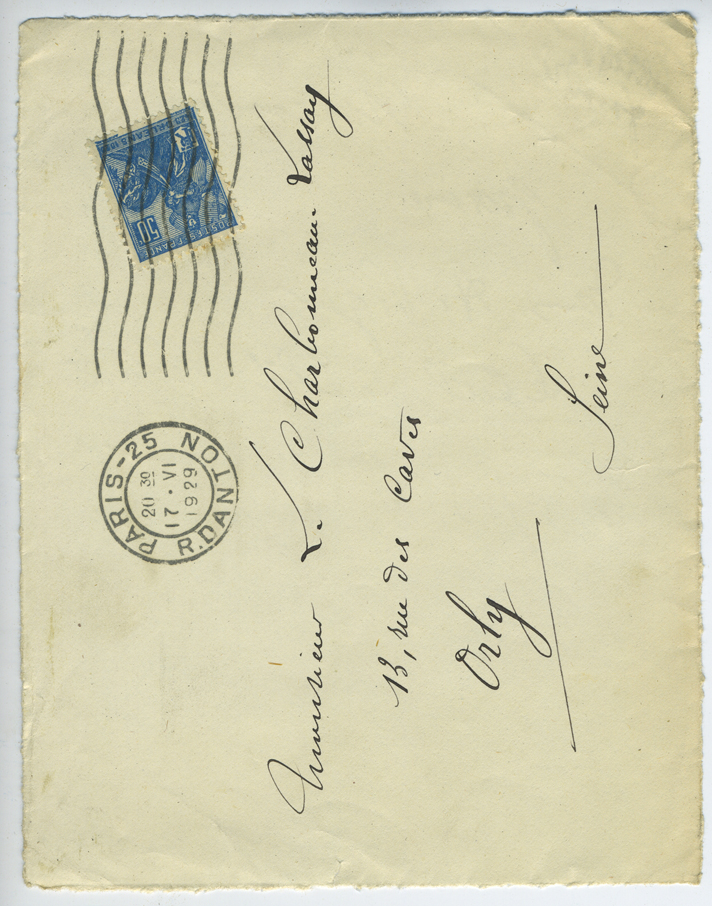 PARIS-25 R. DANTON
20 30
17 · VI
1929
50
POSTES FRANCE
Monsieur L. Charbonneau-Lassay
13, rue des Caves
Orly
Seine